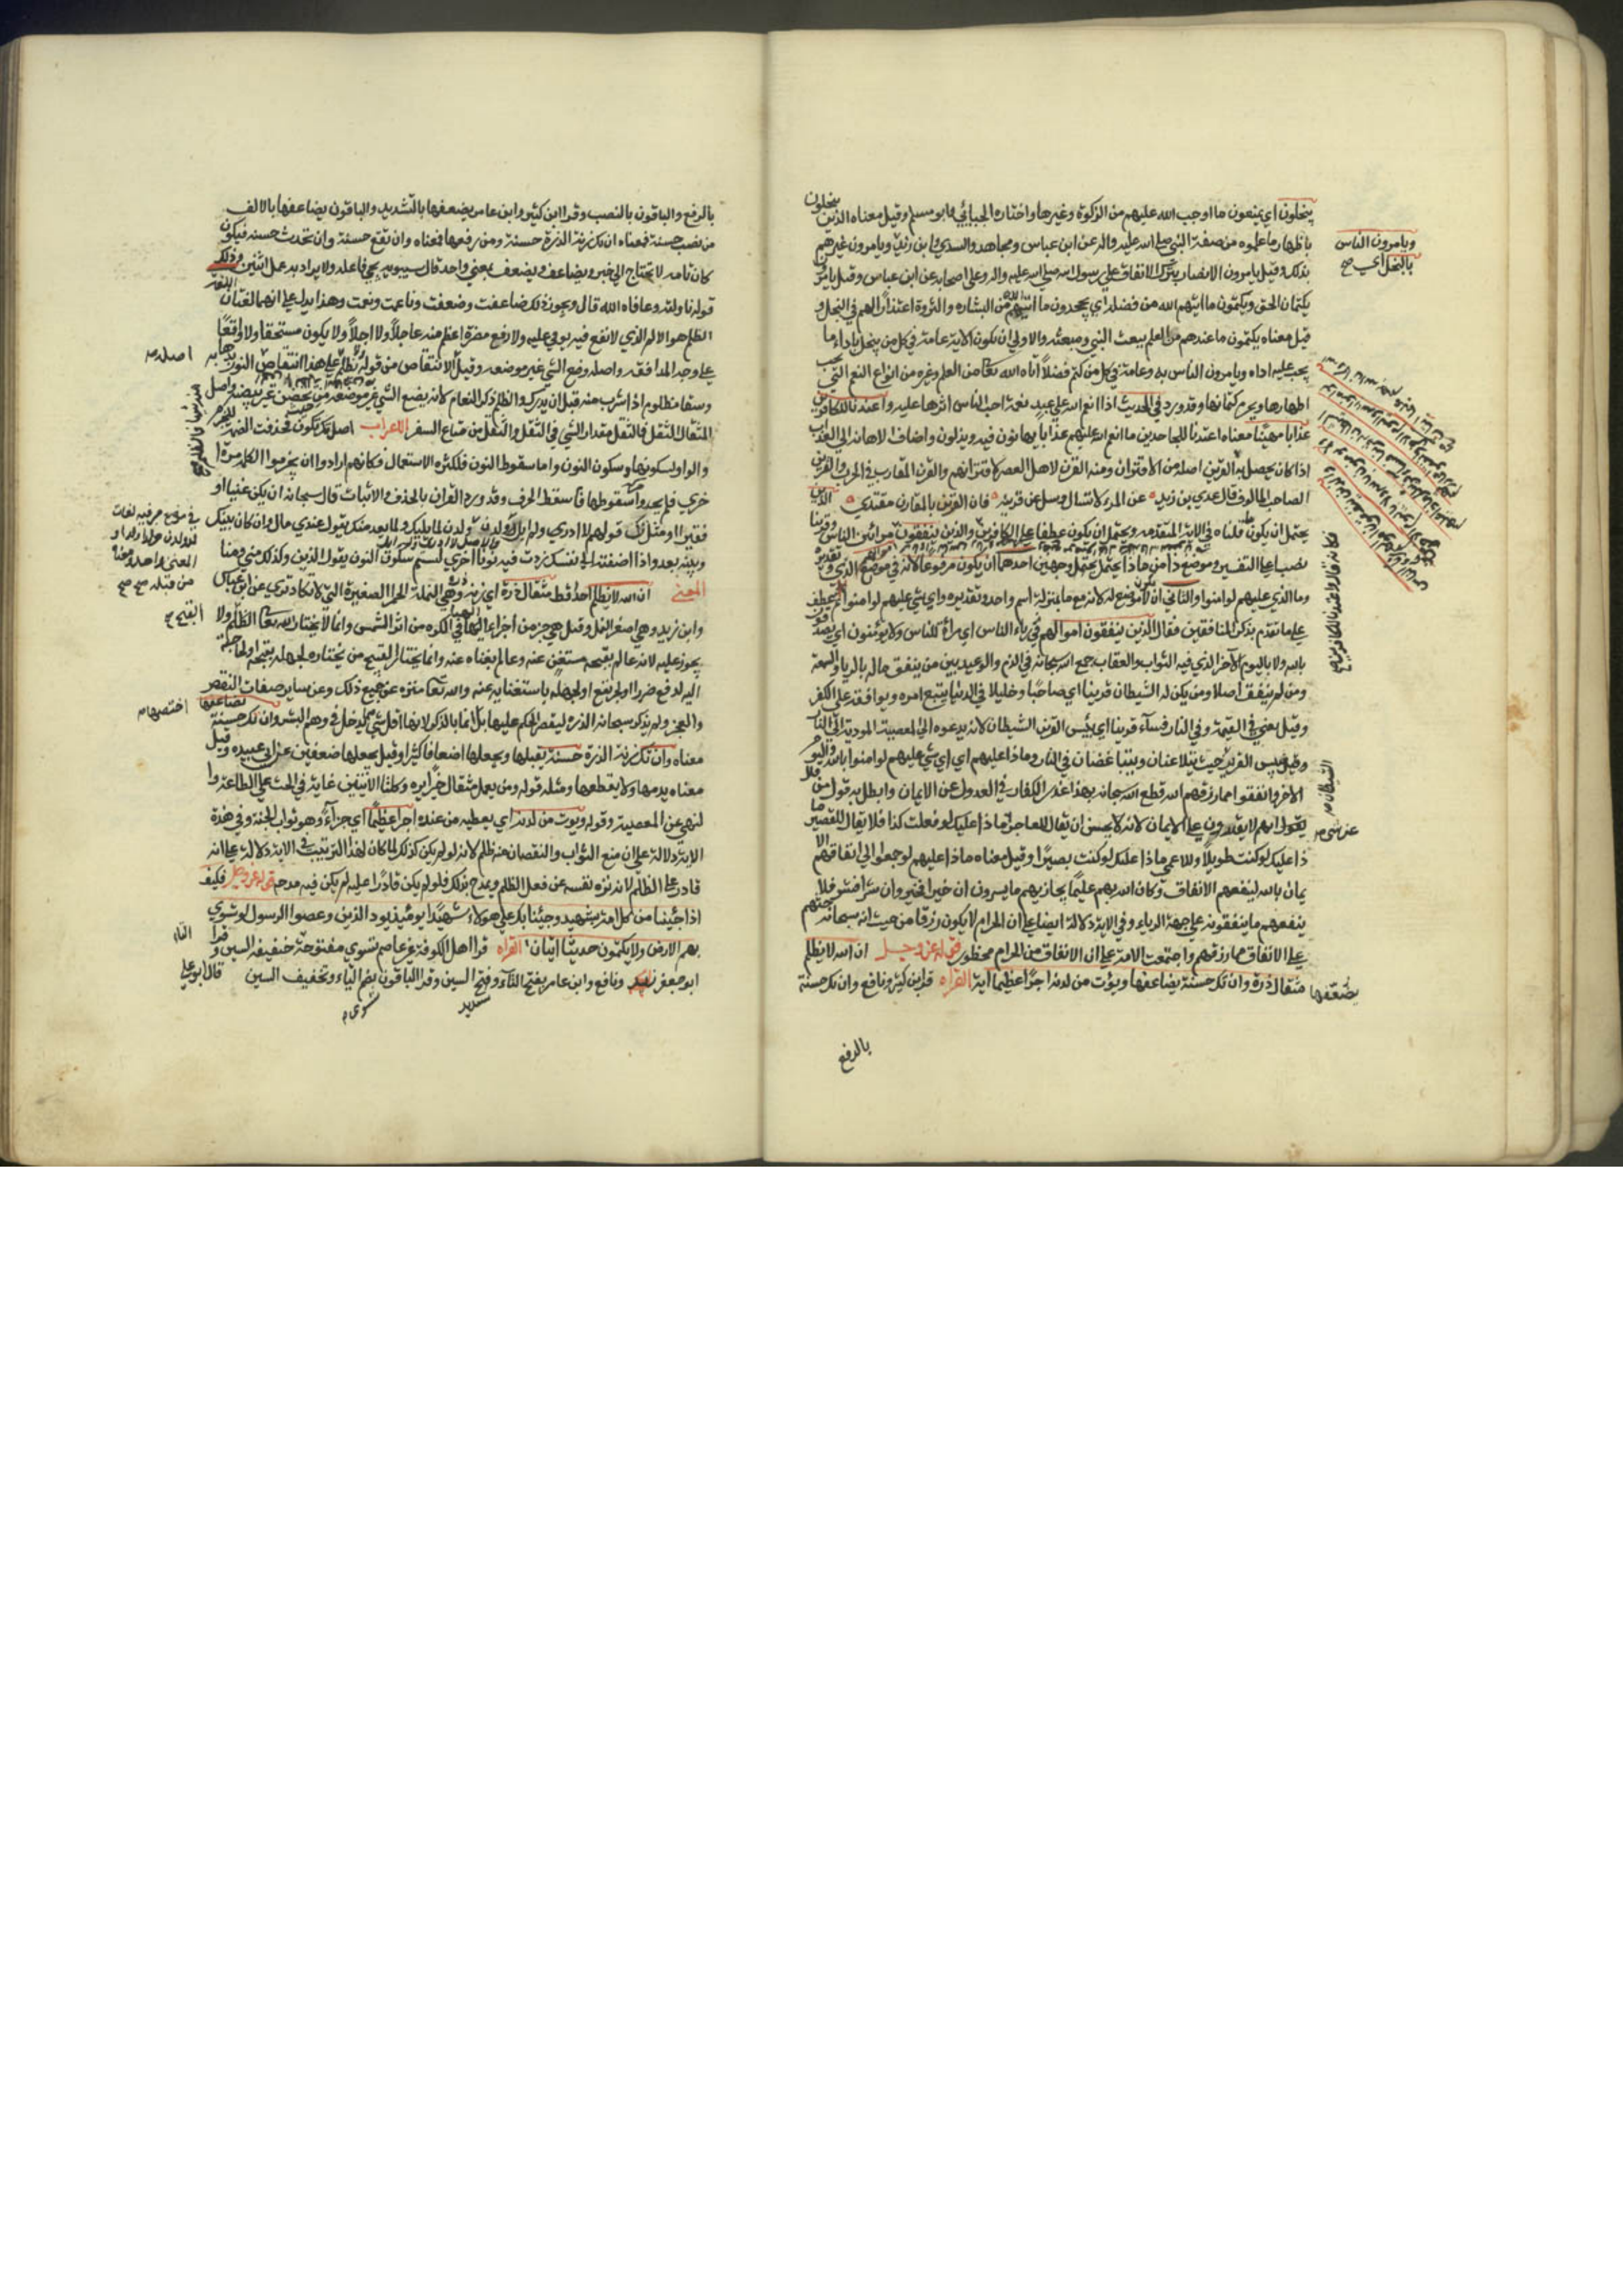 يبخلون اي يمنعون ما اوجب الله عليهم من الزكوة وغيرها واختاره الجبائي وابو مسلم وقيل معناه الذين يبخلون
باظهار ما علموه من صفة النبي صلى الله عليه واله عن ابن عباس ومجاهد والسدي وابن زيد ويامرون غيرهم
بذلك وقيل يامرون الانصار بترك الانفاق على رسول الله صلى الله عليه واله وعلى اصحابه عن ابن عباس وقيل يامرون
بكتمان الحق ويكتمون ما اتيهم الله من فضله اي يجحدون ما اتيهم الله من اليسار والثروة اعتذارا لهم في البخل و
قيل معناه يكتمون ما عندهم من العلم ببعث النبي ومبعثه والاولى ان يكون الاية عامة في كل من يبخل باداء ما
يجب عليه اداه ويامرون الناس به وعامة في كل من كتم فضلا اتاه الله تعالى من العلم وغيره من انواع النعم التي يجب
اظهارها ويحرم كتمانها وقد ورد في الحديث اذا انعم الله على عبد نعمة احب الناس اثرها عليه واعتدنا للكافرين
عذابا مهينا معناه اعتدنا للجاحدين ما انعم الله عليهم عذابا يهانون فيه ويذلون واضاف الاهانة الى العذاب
اذا كان يحصل به القرين اصله من الاقتران ومنه القرن لاهل العصر لاقترانهم والقرن المقاوم في الحرب والقرين
الصاحب المالوف قال عدي بن زيد عن المرء لا تسال وسل عن قرينه فان القرين بالمقارن مقتدي الذين
يحتمل ان يكون ما قلناه في الاية المتقدمة ويحتمل ان يكون عطفا على الكافرين والذين ينفقون اموالهم رئاء الناس وقرينا
نصب على التفسير وموضع ذا من ماذا يحتمل وجهين احدهما ان يكون مرفوعا لانه في موضع الذي وتقديره
وما الذي عليهم لو امنوا والثاني ان لا يكون له موضع لانه مع ما بمنزلة اسم واحد وتقديره واي شي عليهم لو امنوا ثم عطف
على ما تقدم بذكر المنافقين فقال الذين ينفقون اموالهم رئاء الناس اي مراة للناس ولا يؤمنون اي يصدقون
بالله ولا باليوم الاخر الذي فيه الثواب والعقاب جمع الله سبحانه في الذم والوعيد بين من ينفق ماله بالريا والسمعة
ومن لم ينفق اصلا ومن يكن له الشيطان قرينا اي صاحبا وخليلا في الدنيا يتبع امره ويوافقه على الكفر
وقيل يعني في القيمة وفي النار فساء قرينا اي بئس القرين الشيطان لانه يدعوه الى المعصية المودية الى النار
وقيل بئس القرين حيث يتلاعنان ويتباغضان في النار وماذا عليهم اي اي شي عليهم لو امنوا بالله واليوم
الاخر وانفقوا مما رزقهم الله قطع الله سبحانه بهذا عذر الكفار في العدول عن الايمان وابطل به قول من
يقول انهم لا يقدرون على الايمان لانه لا يحسن ان يقال للعاجز ماذا عليك لو فعلت كذا فلا يقال للقصير ما
ذا عليك لو كنت طويلا وللاعمى ماذا عليك لو كنت بصيرا وقيل معناه ماذا عليهم لو جمعوا الى انفاقهم الا
يمان بالله لينفعهم الانفاق وكان الله بهم عليما يجازيهم ما يسرون ان خيرا فخير وان شرا فشر فلا
ينفعهم ما ينفقونه على جهة الرياء وفي الاية دلالة ايضا على ان الحرام لا يكون رزقا من حيث انه سبحانه
على الانفاق مما رزقهم واجتمعت الامة على ان الانفاق من الحرام محظور قوله عز وجل ان الله لا يظلم
مثقال ذرة وان تك حسنة يضاعفها ويؤت من لدنه اجرا عظيما اية القراه قرا ابن كثير ونافع وان تك حسنة
بالرفع
ويامرون الناس
بالبخل اي صح
الشيطان
عن شي
يضعفها
بالرفع والباقون بالنصب وقرا ابن كثير وابن عامر يضعفها بالتشديد والباقون يضاعفها بالالف
من نصب حسنة فمعناه ان تك زنة الذرة حسنة ومن رفعها فمعناه وان تقع حسنة وان تحدث حسنة فيكون
كان تامة لا تحتاج الى خبر ويضاعف ويضعف بمعنى واحد قال سيبويه يجي فاعله ولا يراد به عمل اثنين وذلك
قوله ناولته وعافاه الله قال ونحو ذلك ضاعفت وضعفت وناعمت ونعمت وهذا يدل على انهما لغتان
الظلم هو الالم الذي لا نفع فيه يوفي عليه ولا دفع مضرة اعظم منه عاجلا ولا اجلا ولا يكون مستحقا ولا واقعا
على وجه المدافعة واصله وضع الشي غير موضعه وقيل الانتقاص من قوله ولم تظلم
وسقاء مظلوم اذا شرب منه قبل ان يدرك والظليم ذكر النعام لانه يضع الشي غير موضعه من حيث يحضن غير بيضه واصل
المثقال الثقل فالثقل مقدار الشي في الثقل والثقل من متاع السفر الاعراب اصل تك تكون فحذفت الضمة للجزم
والواو لسكونها وسكون النون واما سقوط النون فلكثرة الاستعمال فكانهم ارادوا ان يجزموا الكلمة مرة ا
خرى فلم يجدوا حركة يسقطوها فاسقط الحرف وقد ورد القران بالحذف والاثبات قال سبحانه ان يكن غنيا او
فقيرا ومثل ذلك قولهم لا ادر ولم ابل ولدن ولدن لما يليك ولما بعد منك تقول عندي مال وان كان بينك
وبينه بعد واذا اضفته الى نفسك زدت فيه نونا اخرى ليسلم سكون النون يقول لدني وكذلك مني وعني
المعنى ان الله لا يظلم احدا قط مثقال ذرة اي زنة ذرة وهي النملة الحمرا الصغيرة التي لا تكاد ترى عن ابن عباس
وابن زيد وهي اصغر النمل وقيل هي جزء من اجزاء الهباء في الكوة من اثر الشمس وانما لا يختار الله تعالى الظلم ولا
يجوز عليه لانه عالم بقبحه مستغن عنه وعالم بغناه عنه وانما يختار القبيح من يختاره لجهله بقبحه او لحاجته
اليه لدفع ضرر او لجر نفع او لجهله باستغنائه عنه والله تعالى منزه عن جميع ذلك وعن ساير صفات النقص
والعجز ولم يذكر سبحانه الذرة ليقصر الحكم عليها بل انما بالذكر لانها اقل شي مما يدخل في وهم البشر وان تك حسنة يضاعفها
معناه وان تك زنة الذرة حسنة يقبلها ويجعلها اضعافا كثيرا وقيل يجعلها ضعفين عن ابي عبيدة وقيل
معناه يديمها ولا يقطعها ومثله قوله ومن يعمل مثقال خيرا يره وكلتا الايتين غاية في الحث على الطاعة وا
لنهي عن المعصية وقوله ويؤت من لدنه اي يعطيه من عنده اجرا عظيما اي جزاء وهو ثواب الجنة وفي هذة
الاية دلالة على ان منع الثواب والنقصان منه ظلم لانه لو لم يكن كذلك لما كان لهذا الترتيب في الاية دلالة على انه
قادر على الظلم لانه نزه نفسه عن فعل الظلم ويمدح بذلك فلو لم يكن قادرا عليه لم يكن فيه مدحة قوله عز وجل فكيف
اذا جئينا من كل امة بشهيد وجئنا بك على هولاء شهيدا يومئذ يود الذين وعصوا الرسول لو تسوي
بهم الارض ولا يكتمون حديثا ايتان القراه قرا اهل الكوفة غير عاصم تسوي مفتوحة خفيفة السين وقرا
ابو جعفر ونافع وابن عامر بفتح التاء وفتح السين وقرا الباقون بضم التاء وتخفيف السين قال ابو علي
اصله
القبيح
اختصها
التاء
تشديد
تسوى